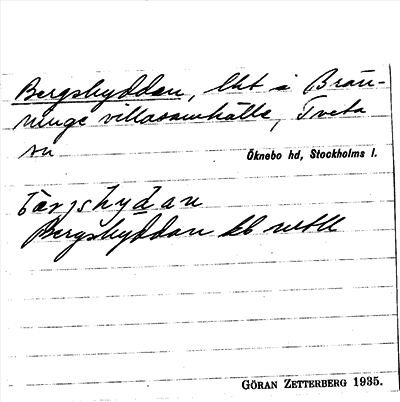 Bergshyddan, lht å Brän-
ninge villasamhälle, Tveta
sn Öknebo hd, Stockholms l.
bärjshydan
Bergshyddan
GÖRAN ZETTERBERG 1935.